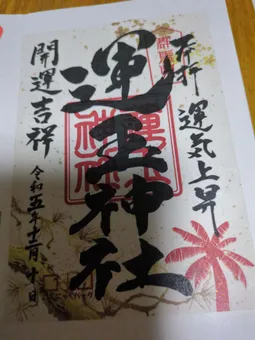 奉拝 運気上昇
運玉神社
開運吉祥 令和五年十二月十日